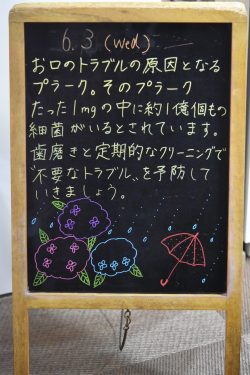 6.3 (wed.)
お口のトラブルの原因となる
プラーク。そのプラーク
たった1mgの中に約1億個もの
細菌がいるとされています。
歯磨きと定期的なクリーニングで
"不要なトラブル"を予防して
いきましょう。